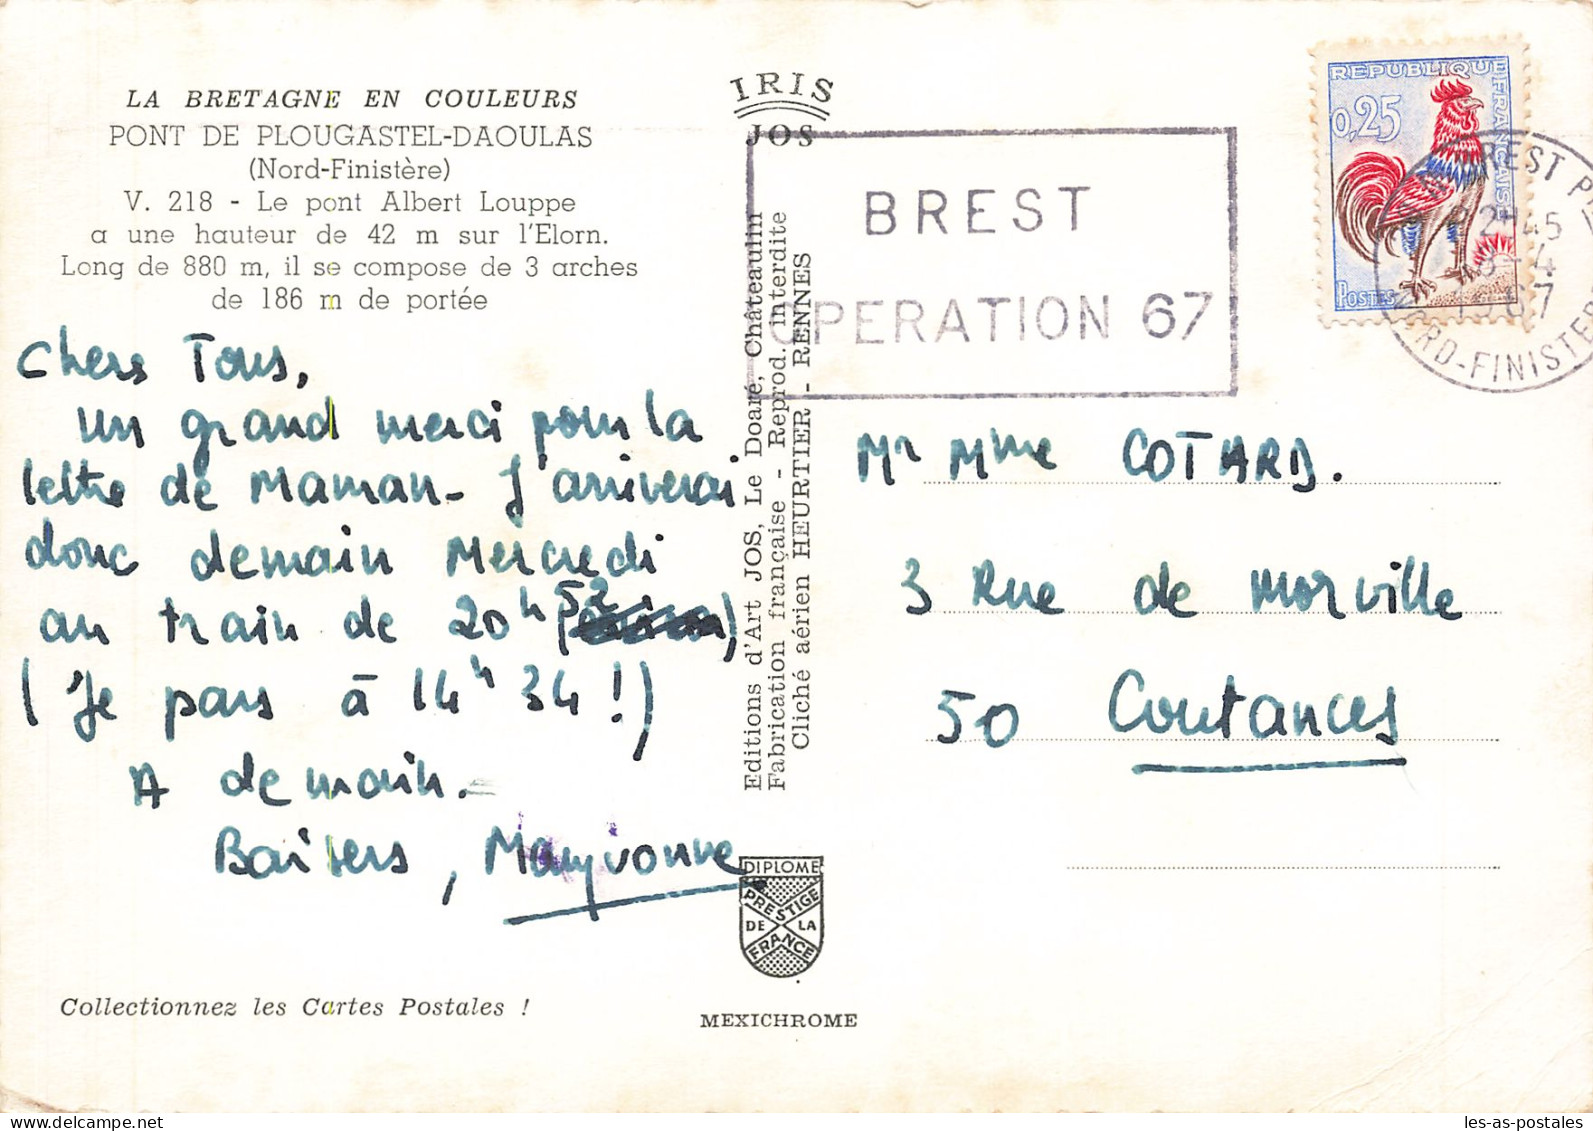 LA BRETAGNE EN COULEURS
PONT DE PLOUGASTEL-DAOULAS
(Nord-Finistère)
V. 218 - Le pont Albert Louppe
a une hauteur de 42 m sur l'Elorn.
Long de 880 m, il se compose de 3 arches
de 186 m de portée
Chers Tous,
Un grand merci pour la
lettre de Maman - J'arriverai
donc demain Mercredi
au train de 20h 52
( Je pars à 14h 34 ! )
A demain.
Baisers, Maryvonne
Collectionnez les Cartes Postales !
IRIS
JOS
Editions d'Art JOS, Le Doaré, Châteaulin
Fabrication française - Reprod. interdite
Cliché aérien HEURTIER - RENNES
DIPLOME
PRESTIGE
DE LA
FRANCE
MEXICHROME
BREST
OPERATION 67
REPUBLIQUE
FRANÇAISE
0,25
POSTES
BREST
45
-4
1967
NORD-FINISTE
Mr Mme COTARD.
3 Rue de Morville
50 Coutances
les-as-postales